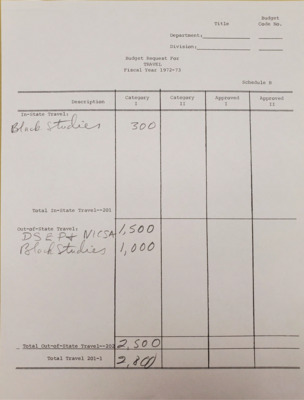 Title Budget Code No.
Department:
Division:
Budget Request For
TRAVEL
Fiscal Year 1972-73
Schedule B
Description Category I Category II Approved I Approved II
In-State Travel:
Black Studies 300
Total In-State Travel--201
Out-of-State Travel: 1,500
DSEP & NICSA
Black Studies 1,000
Total Out-of-State Travel--202 2,500
Total Travel 201-1 2,800